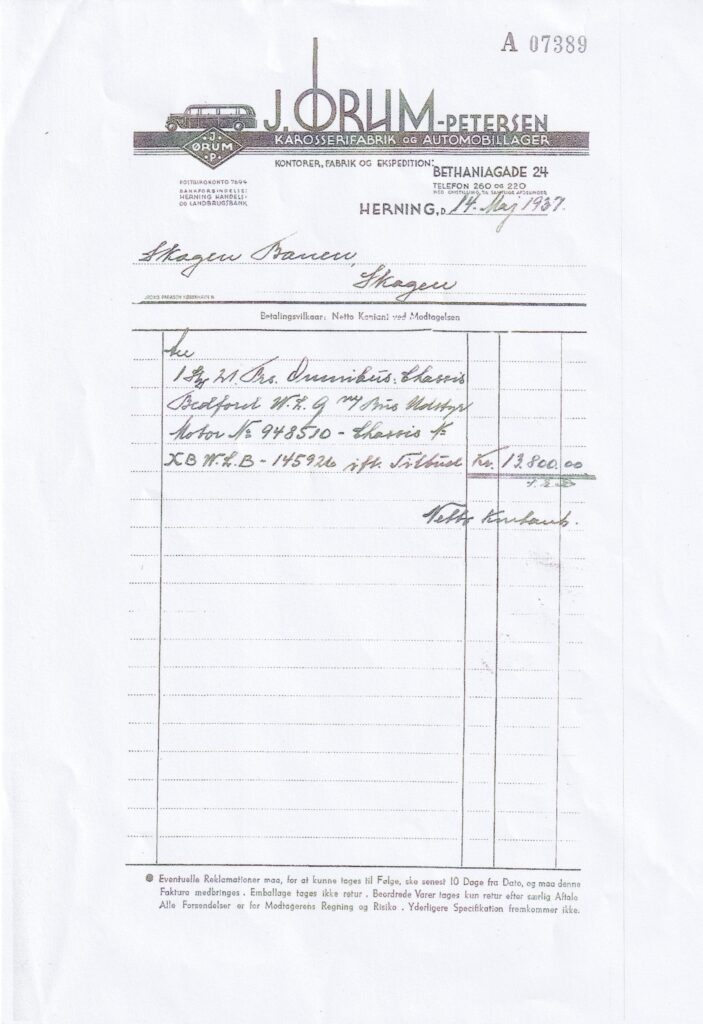 A 07389
J. ØRUM-PETERSEN
KAROSSERIFABRIK OG AUTOMOBILLAGER
J. ØRUM P.
KONTORER, FABRIK OG EKSPEDITION:
BETHANIAGADE 24
POSTGIROKONTO 7694
TELEFON 260 OG 220
BANKFORBINDELSE:
MED OMSTILLING TIL SAMTLIGE AFDELINGER
HERNING HANDELS-
OG LANDBRUGSBANK
HERNING, D. 14. Maj 1937.
Skagen Banen,
Skagen
Betalingsvilkaar: Netto Kontant ved Modtagelsen
1 Stk 21 Prs. Omnibus. Chassis
Bedford W.L.G m/ Bus Udstyr
Motor No 948510 - Chassis No
XB W.L.B - 145926 ifl. Tilbud Kr. 13.800.00
Netto Kontant.
Eventuelle Reklamationer maa, for at kunne tages til Følge, ske senest 10 Dage fra Dato, og maa denne
Faktura medbringes . Emballage tages ikke retur . Beordrede Varer tages kun retur efter særlig Aftale
Alle Forsendelser er for Modtagerens Regning og Risiko . Yderligere Specifikation fremkommer ikke.